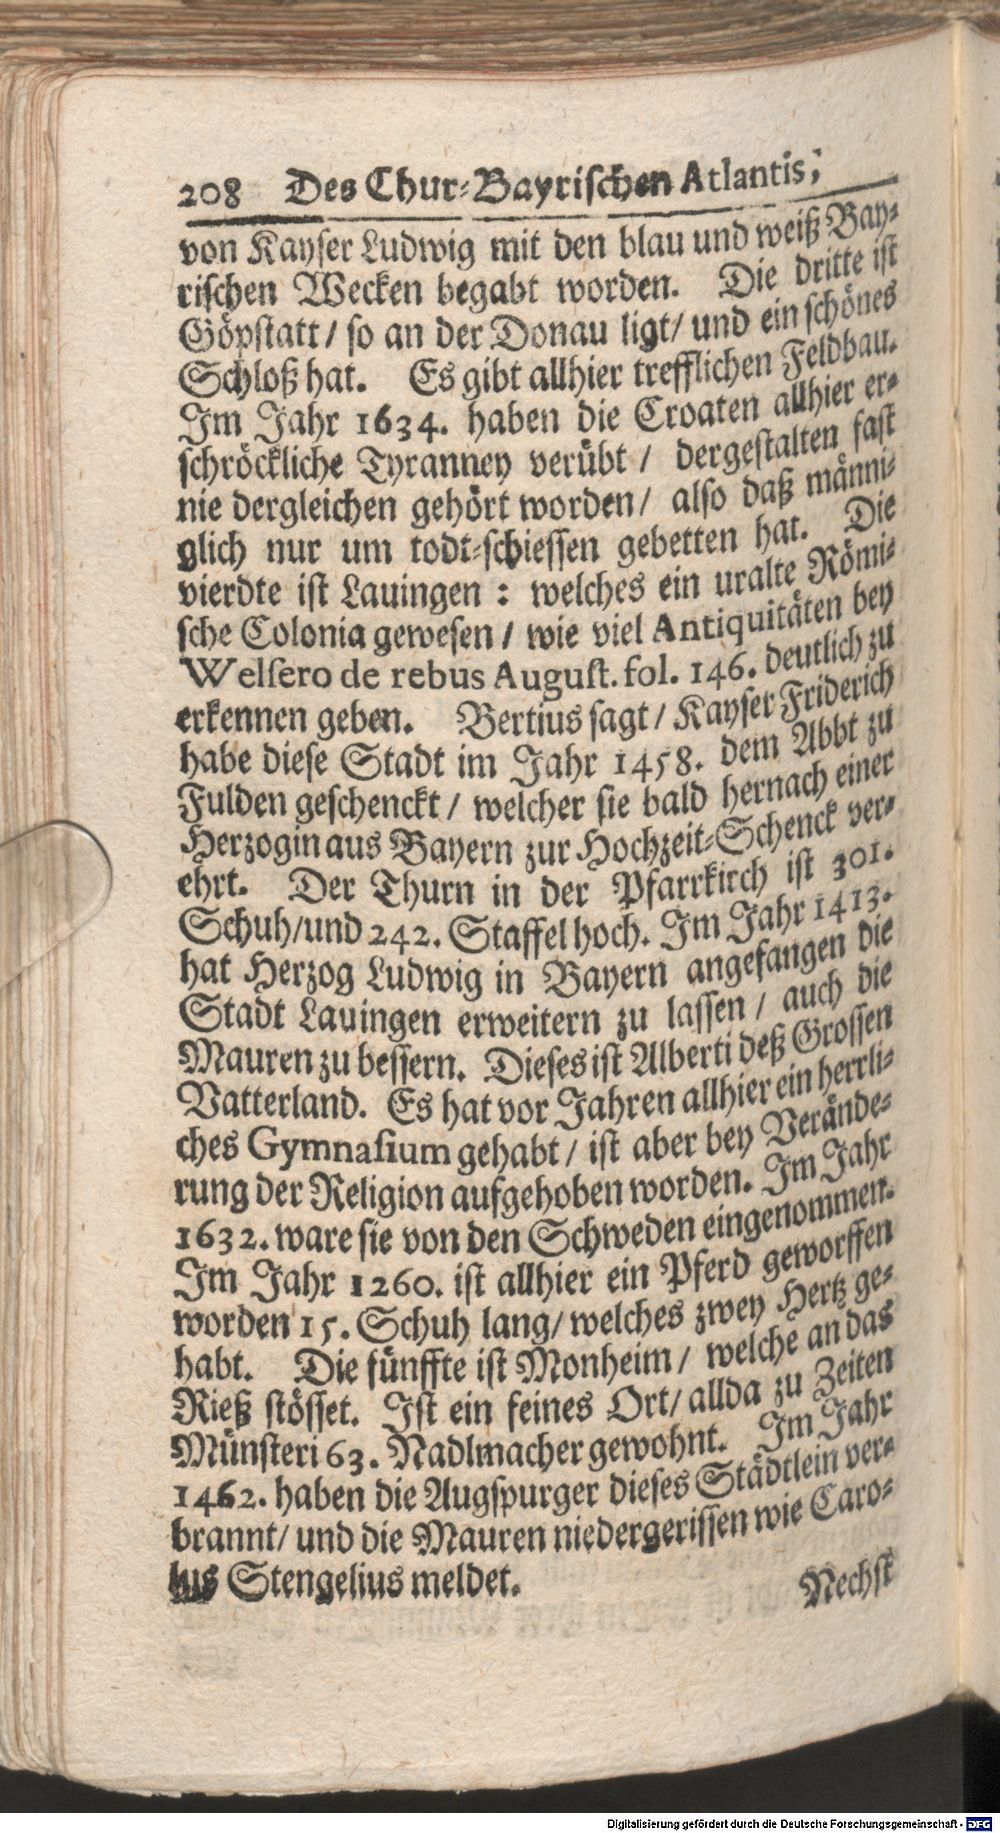 208 Des Chur-Bayrischen Atlantis,
von Kayser Ludwig mit den blau und weiß Bay-
rischen Wecken begabt worden. Die dritte ist
Göpstatt / so an der Donau ligt / und ein schönes
Schloß hat. Es gibt allhier trefflichen Feldbau.
Im Jahr 1634. haben die Croaten allhier er-
schröckliche Tyranney verübt / dergestalten fast
nie dergleichen gehört worden / also daß männi-
glich nur um todt-schiessen gebetten hat. Die
vierdte ist Lauingen : welches ein uralte Römi-
sche Colonia gewesen / wie viel Antiquitäten bey
Welsero de rebus August. fol. 146. deutlich zu
erkennen geben. Bertius sagt / Kayser Friderich
habe diese Stadt im Jahr 1458. dem Abbt zu
Fulden geschenckt / welcher sie bald hernach einer
Herzogin aus Bayern zur Hochzeit-Schenck ver-
ehrt. Der Thurn in der Pfarrkirch ist 301.
Schuh / und 242. Staffel hoch. Im Jahr 1413.
hat Herzog Ludwig in Bayern angefangen die
Stadt Lauingen erweitern zu lassen / auch die
Mauren zu bessern. Dieses ist Alberti deß Grossen
Vatterland. Es hat vor Jahren allhier ein herrli-
ches Gymnasium gehabt / ist aber bey Verände-
rung der Religion aufgehoben worden. Im Jahr
1632. ware sie von den Schweden eingenommen.
Im Jahr 1260. ist allhier ein Pferd geworffen
worden 15. Schuh lang / welches zwey Hertz ge-
habt. Die fünffte ist Monheim / welche an das
Rieß stösset. Ist ein feines Ort / allda zu Zeiten
Münsteri 63. Nadlmacher gewohnt. Im Jahr
1462. haben die Augspurger dieses Städtlein ver-
brannt / und die Mauren niedergerissen wie Caro-
lus Stengelius meldet.
Nechst
Digitalisierung gefördert durch die Deutsche Forschungsgemeinschaft - DFG